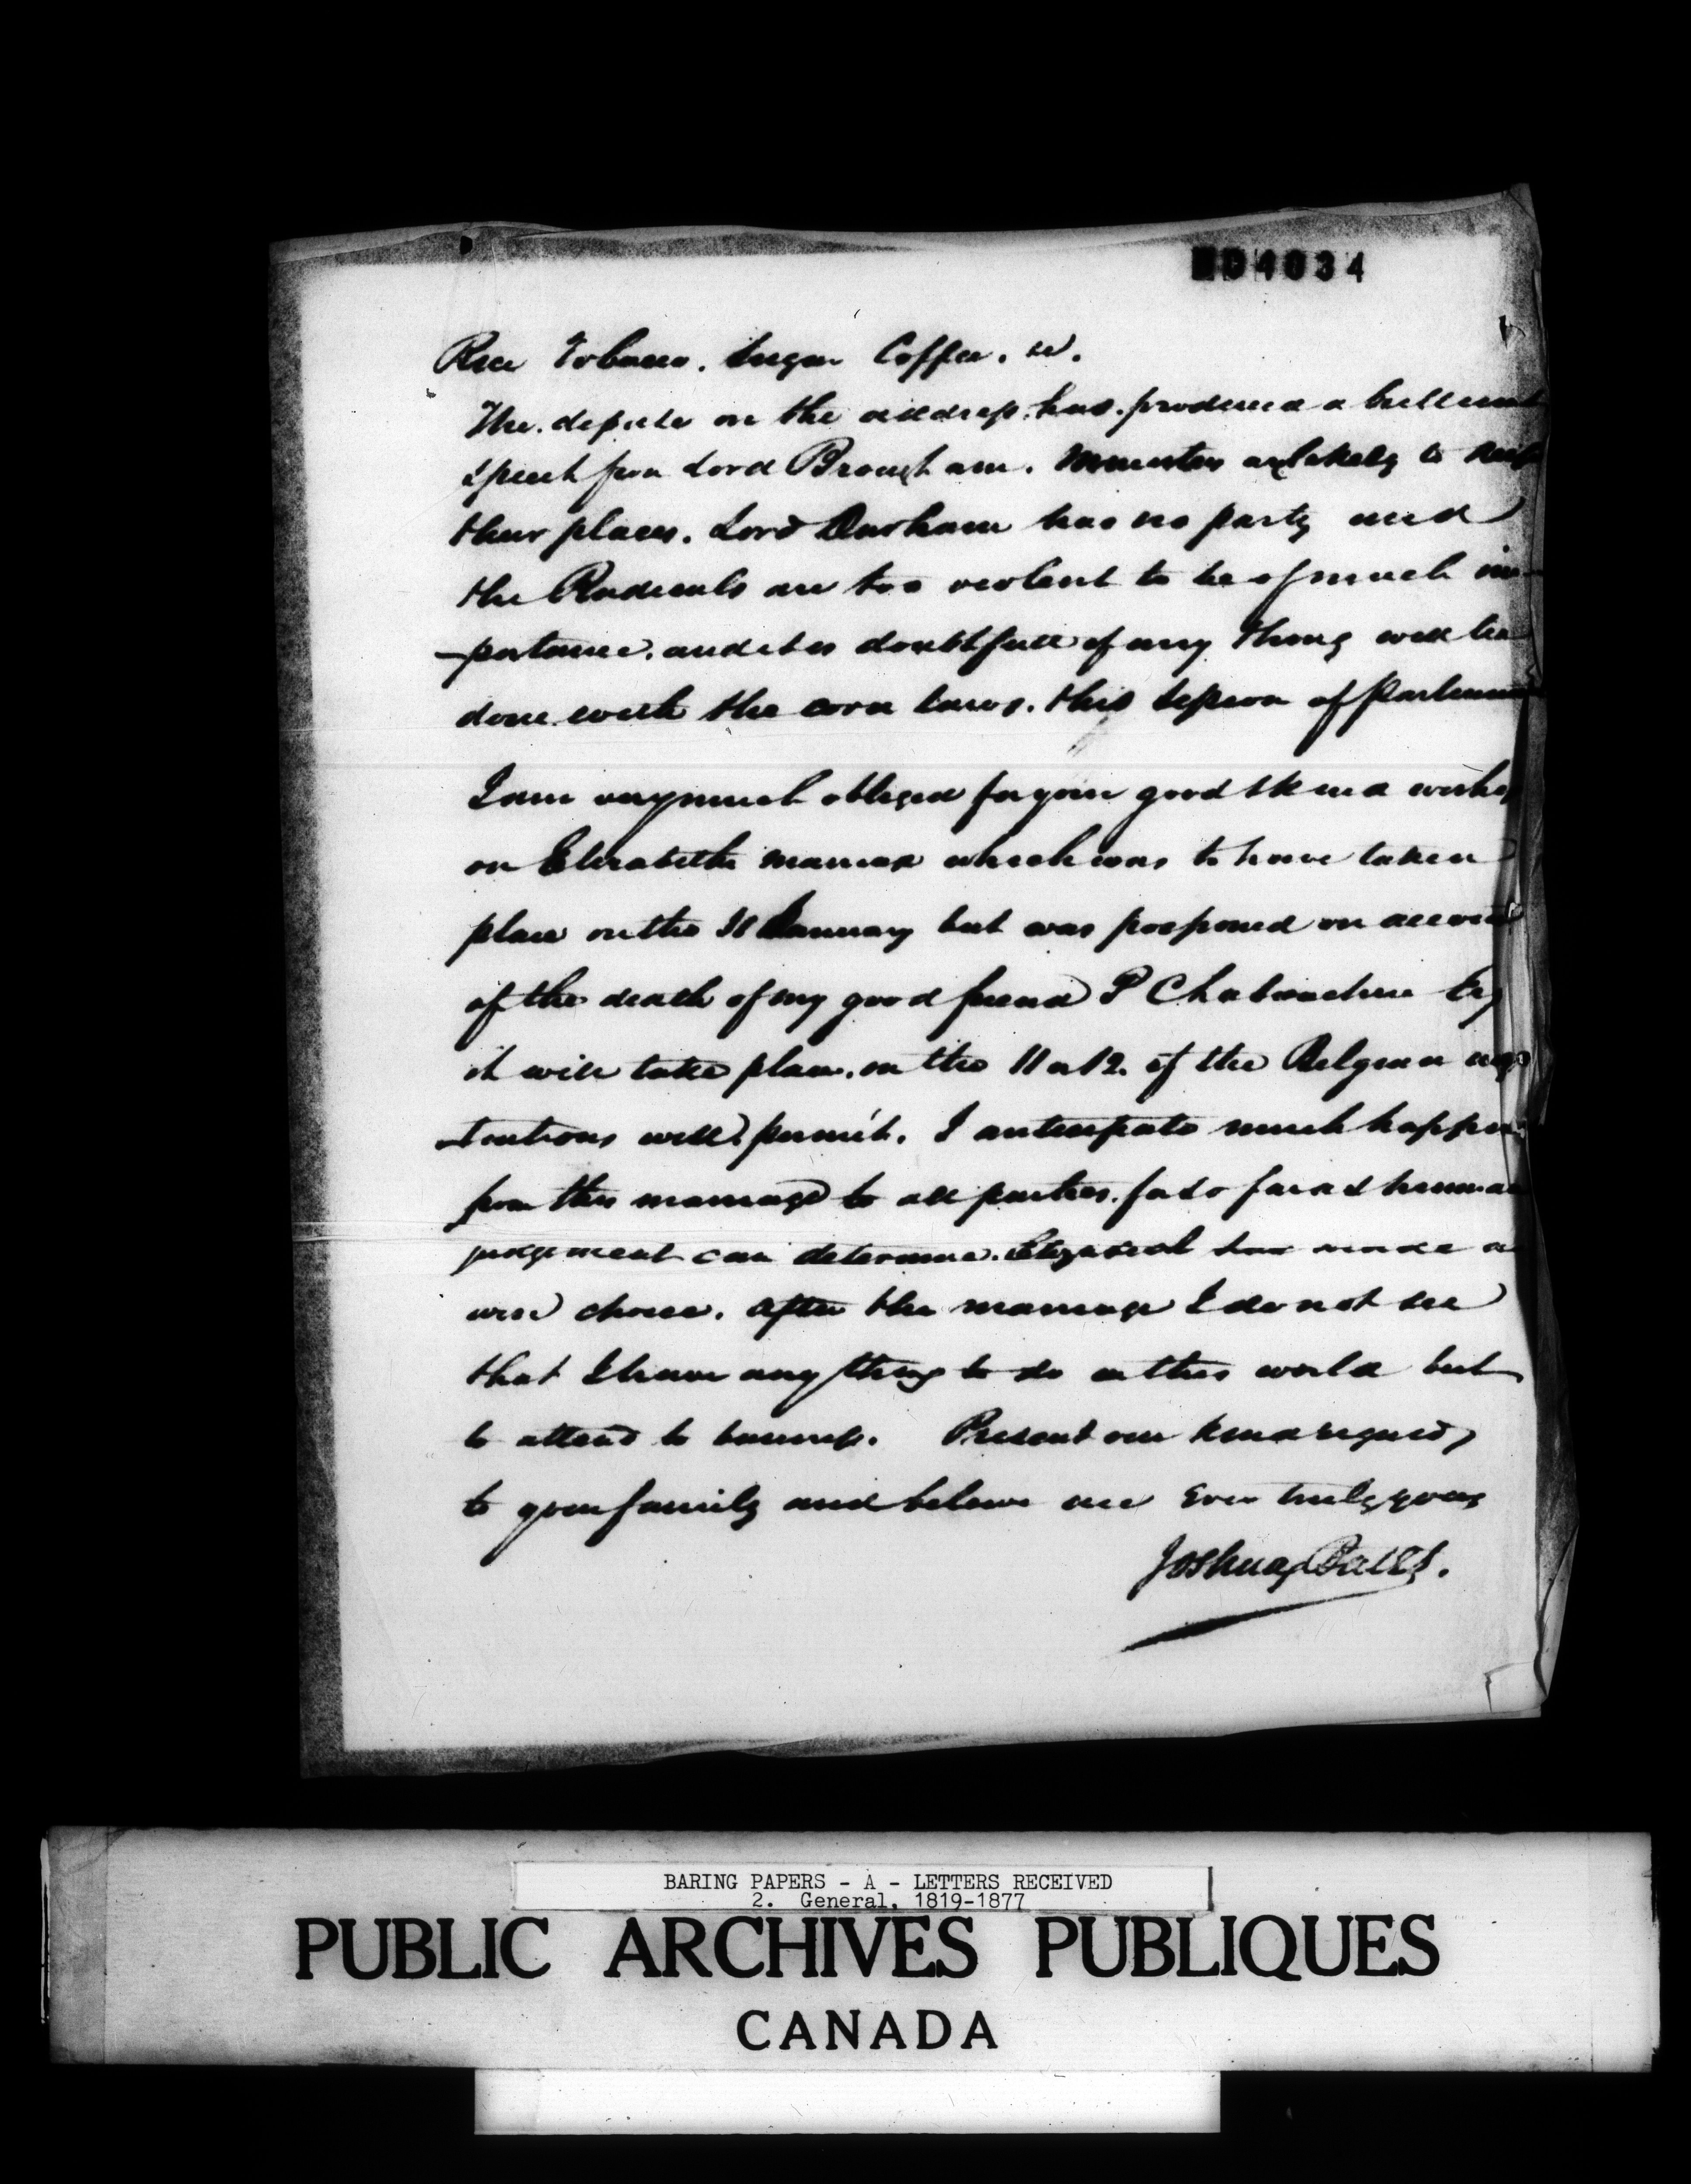 04034
Rice Tobacco. Sugar Coffee. &c.
The debate on the address has produced a brilliant
speech from Lord Brougham. Ministers are likely to keep
their places. Lord Durham has no party and
the Radicals are too violent to be of much im-
-portance. and it is doubtfull if any thing will be
done with the corn laws. this session of Parliament
I am very much obliged for your good & kind wishes
on Elizabeths marriage which was to have taken
place on the January but was posponed on account
of the death of my good friend P C Labouchere Esq
it will take place. on the 11 or 12. if the Belgian nego
-tiations will permit. I anticipate much happiness
from this marriage to all parties. for so far as human
judgement can determine. Elizabeth has made a
wise choice. After the marriage I do not see
that I have any thing to do in this world but
to attend to business. Present our kind regards
to your family and believe me Ever truly yours
Joshua Bates.
BARING PAPERS - A - LETTERS RECEIVED
2. General, 1819-1877
PUBLIC ARCHIVES PUBLIQUES
CANADA